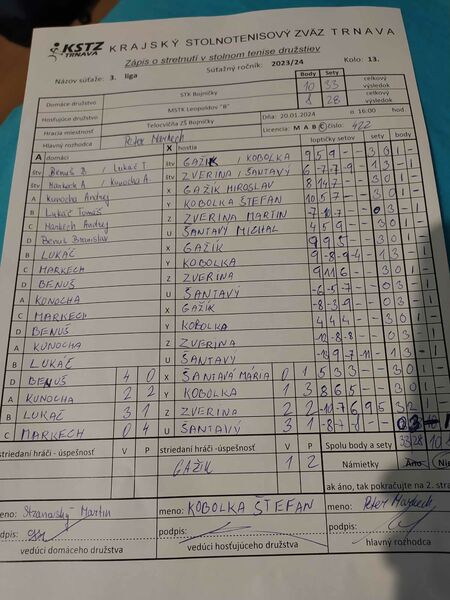 KSTZ TRNAVA KRAJSKÝ STOLNOTENISOVÝ ZVÄZ TRNAVA
Zápis o stretnutí v stolnom tenise družstiev
Názov súťaže: 3. liga Súťažný ročník: 2023/24 Kolo: 13.
Body Sety
Domáce družstvo STK Bojničky 10 33 celkový výsledok
Hosťujúce družstvo MSTK Leopoldov "B" 8 28 celkový výsledok
Hracia miestnosť Telocvičňa ZŠ Bojničky Dňa: 20.01.2024 o 16:00 hod.
Hlavný rozhodca Peter Markech Licencia: M A B C číslo: 422
A domáci X hostia loptičky setov sety body
štv Benuš B / Lukáč T štv GAŽIK / KOBOLKA 9 5 9 - - 3 0 1 -
štv Markech A / Kunocha A. štv ZVERINA / ŠANTAVÝ 6 -7 -7 -9 1 3 - 1
A Kunocha Andrej X GAŽIK MIROSLAV 8 14 7 - - 3 0 1 -
B Lukáč Tomáš Y KOBOLKA ŠTEFAN 10 5 7 - - 3 0 1 -
C Markech Andrej Z ZVERINA MARTIN 0 3 - 1
D Benuš Branislav U ŠANTAVÝ MICHAL 4 5 9 - - 3 0 1 -
B LUKÁČ X GAŽIK 9 9 5 - - 3 0 1 -
C MARKECH Y KOBOLKA 9 -8 -9 -4 1 3 - 1
D BENUŠ Z ZVERINA 9 11 6 - - 3 0 1 -
A KUNOCHA U ŠANTAVÝ -6 -5 -7 - - 0 3 - 1
C MARKECH X GAŽIK -8 -3 -9 - - 0 3 - 1
D BENUŠ Y KOBOLKA 4 4 4 - - 3 0 1 -
A KUNOCHA Z ZVERINA -10 -8 -8 - - 0 3 - 1
B LUKÁČ U ŠANTAVÝ 1 3 - 1
D BENUŠ 4 0 X ŠANTAVÁ MÁRIA 0 1 5 3 3 - - 3 0 1 -
A KUNOCHA 2 2 Y KOBOLKA 1 3 8 6 5 - - 3 0 1 -
B LUKÁČ 3 1 Z ZVERINA 2 2 -10 -7 6 9 5 3 2 1 -
C MARKECH 0 4 U ŠANTAVÝ 3 1 0 3 - 1
striedaní hráči - úspešnosť V P striedaní hráči - úspešnosť V P Spolu body a sety 33 28 10
GAŽIK 1 2 Námietky Áno
ak áno, tak pokračujte na 2. stra
meno: Martin meno: KOBOLKA ŠTEFAN meno: Peter Markech
podpis: podpis: podpis:
vedúci domáceho družstva vedúci hosťujúceho družstva hlavný rozhodca